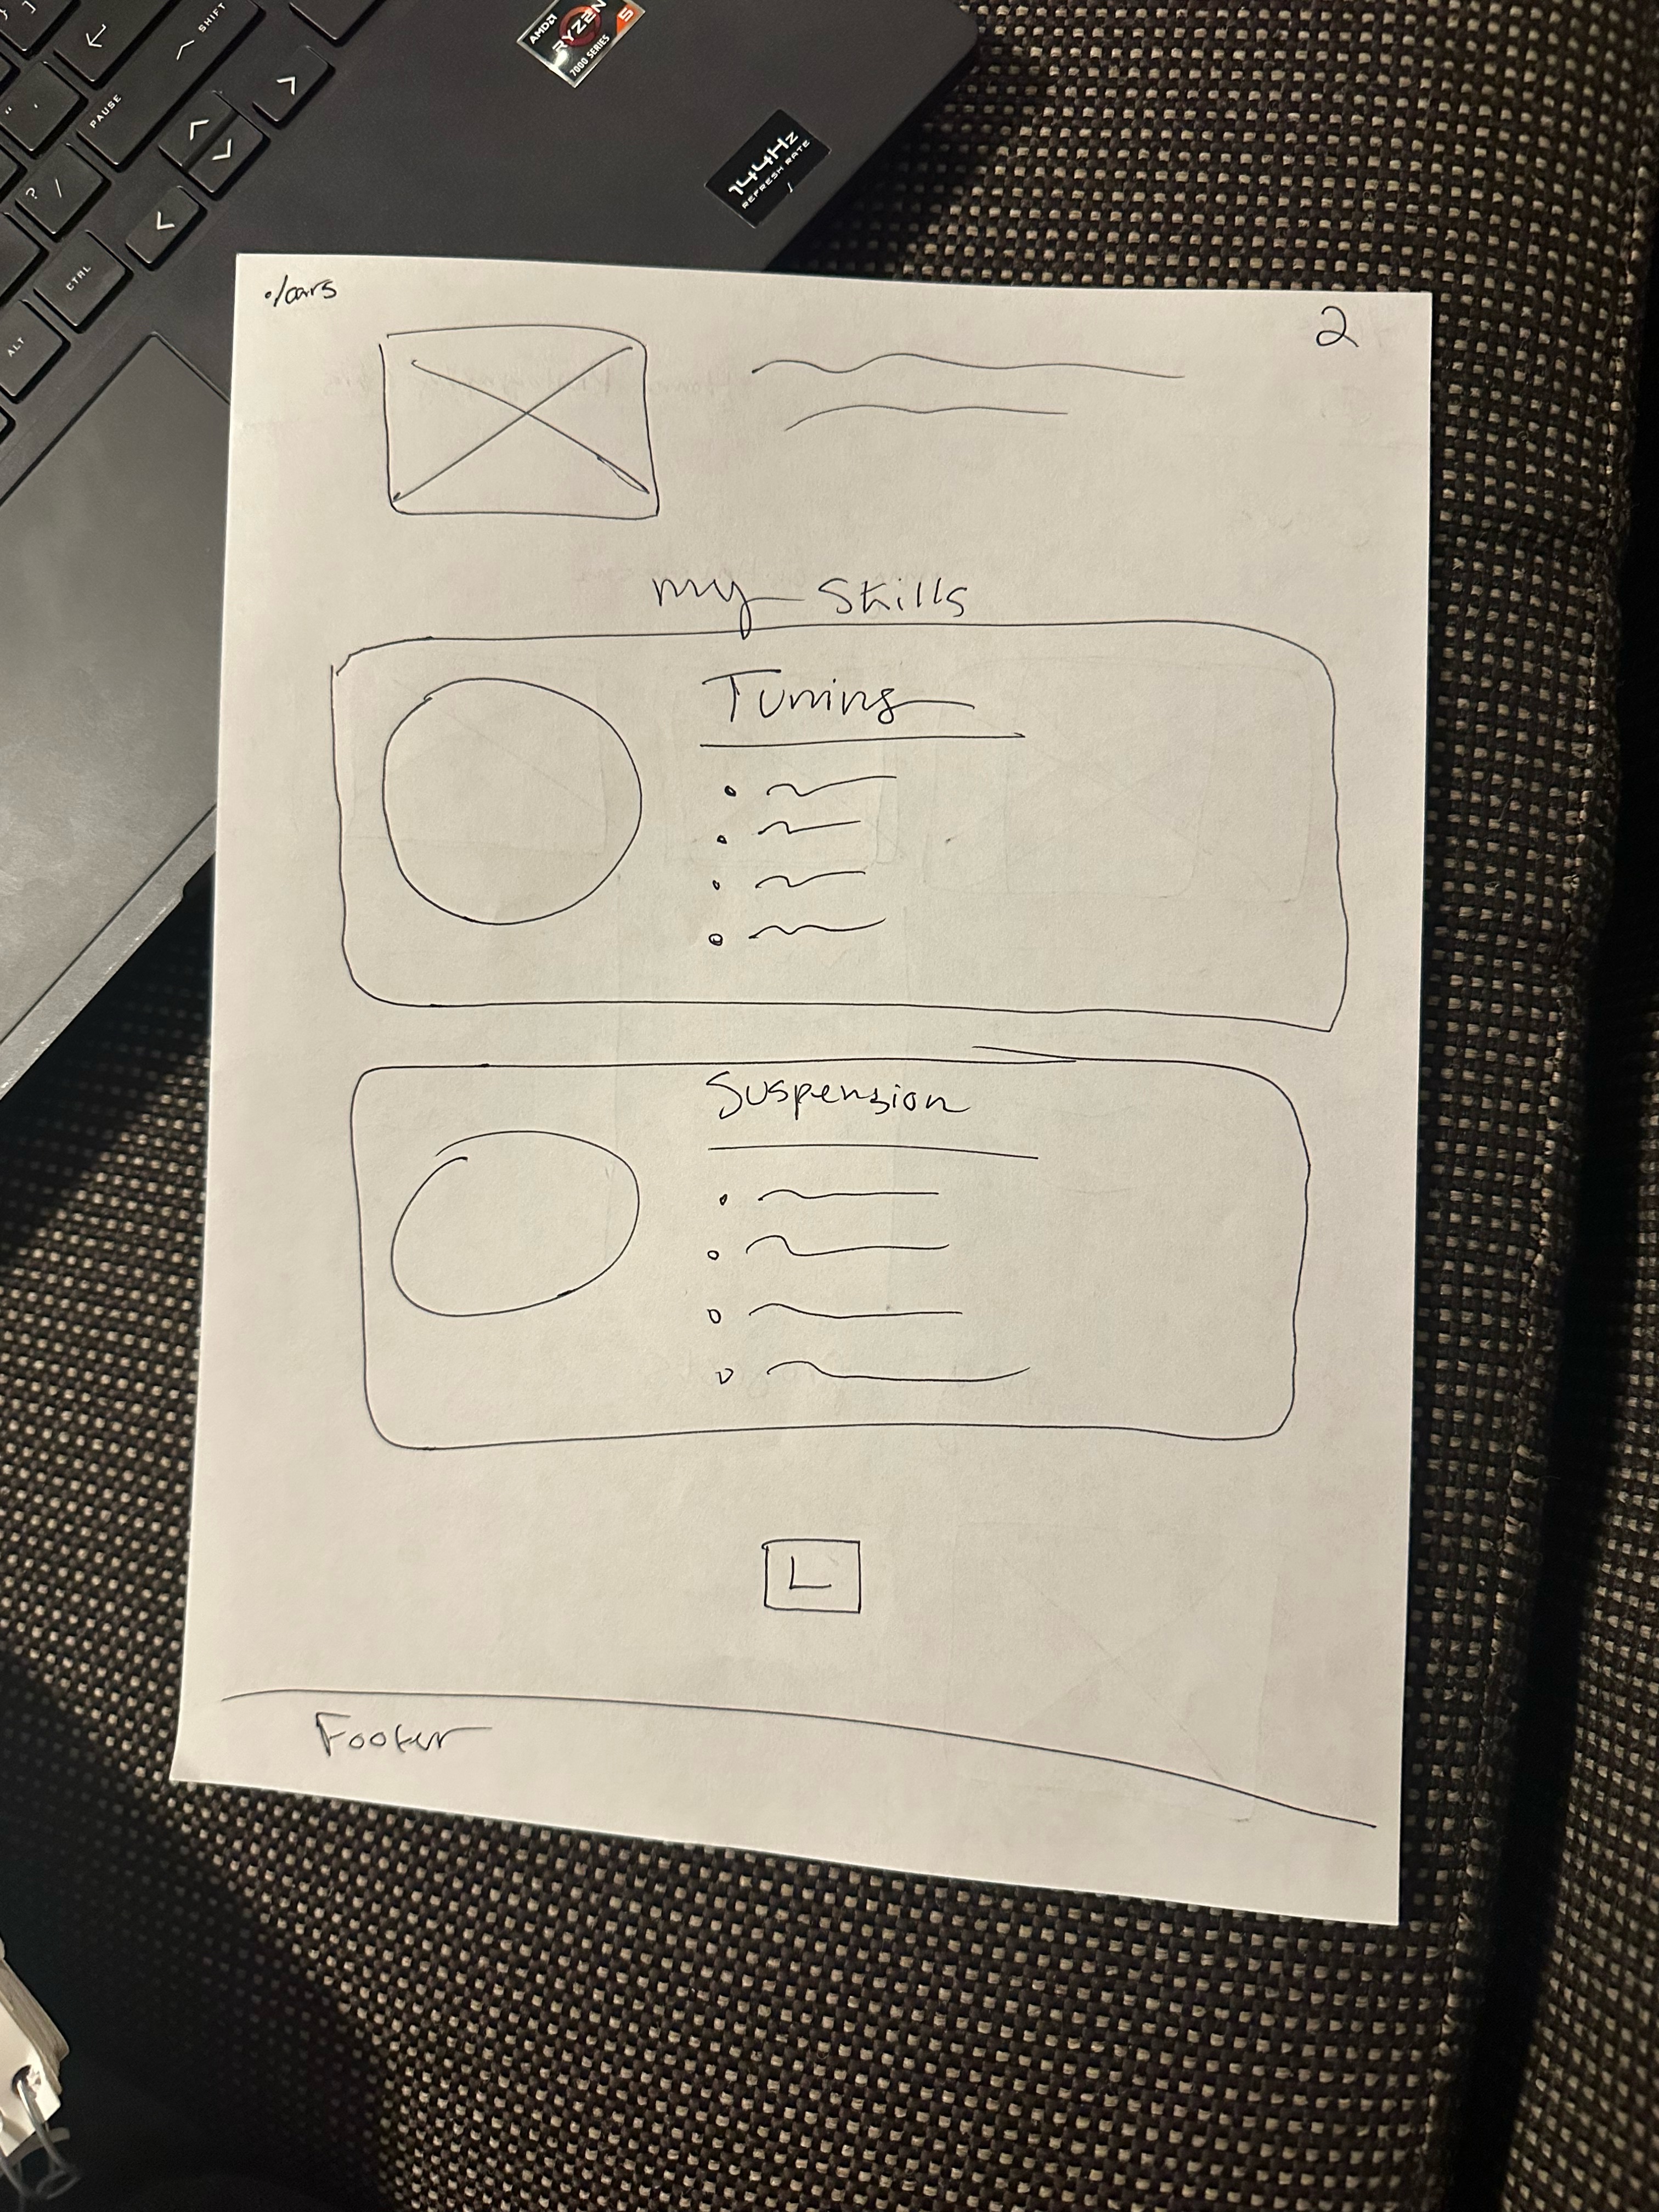 SHIFT
PAUSE
? /
CTRL
ALT
AMD
RYZEN 5
7000 SERIES
144Hz
REFRESH RATE
./cars
2
my skills
Tuning
Suspension
L
Footer